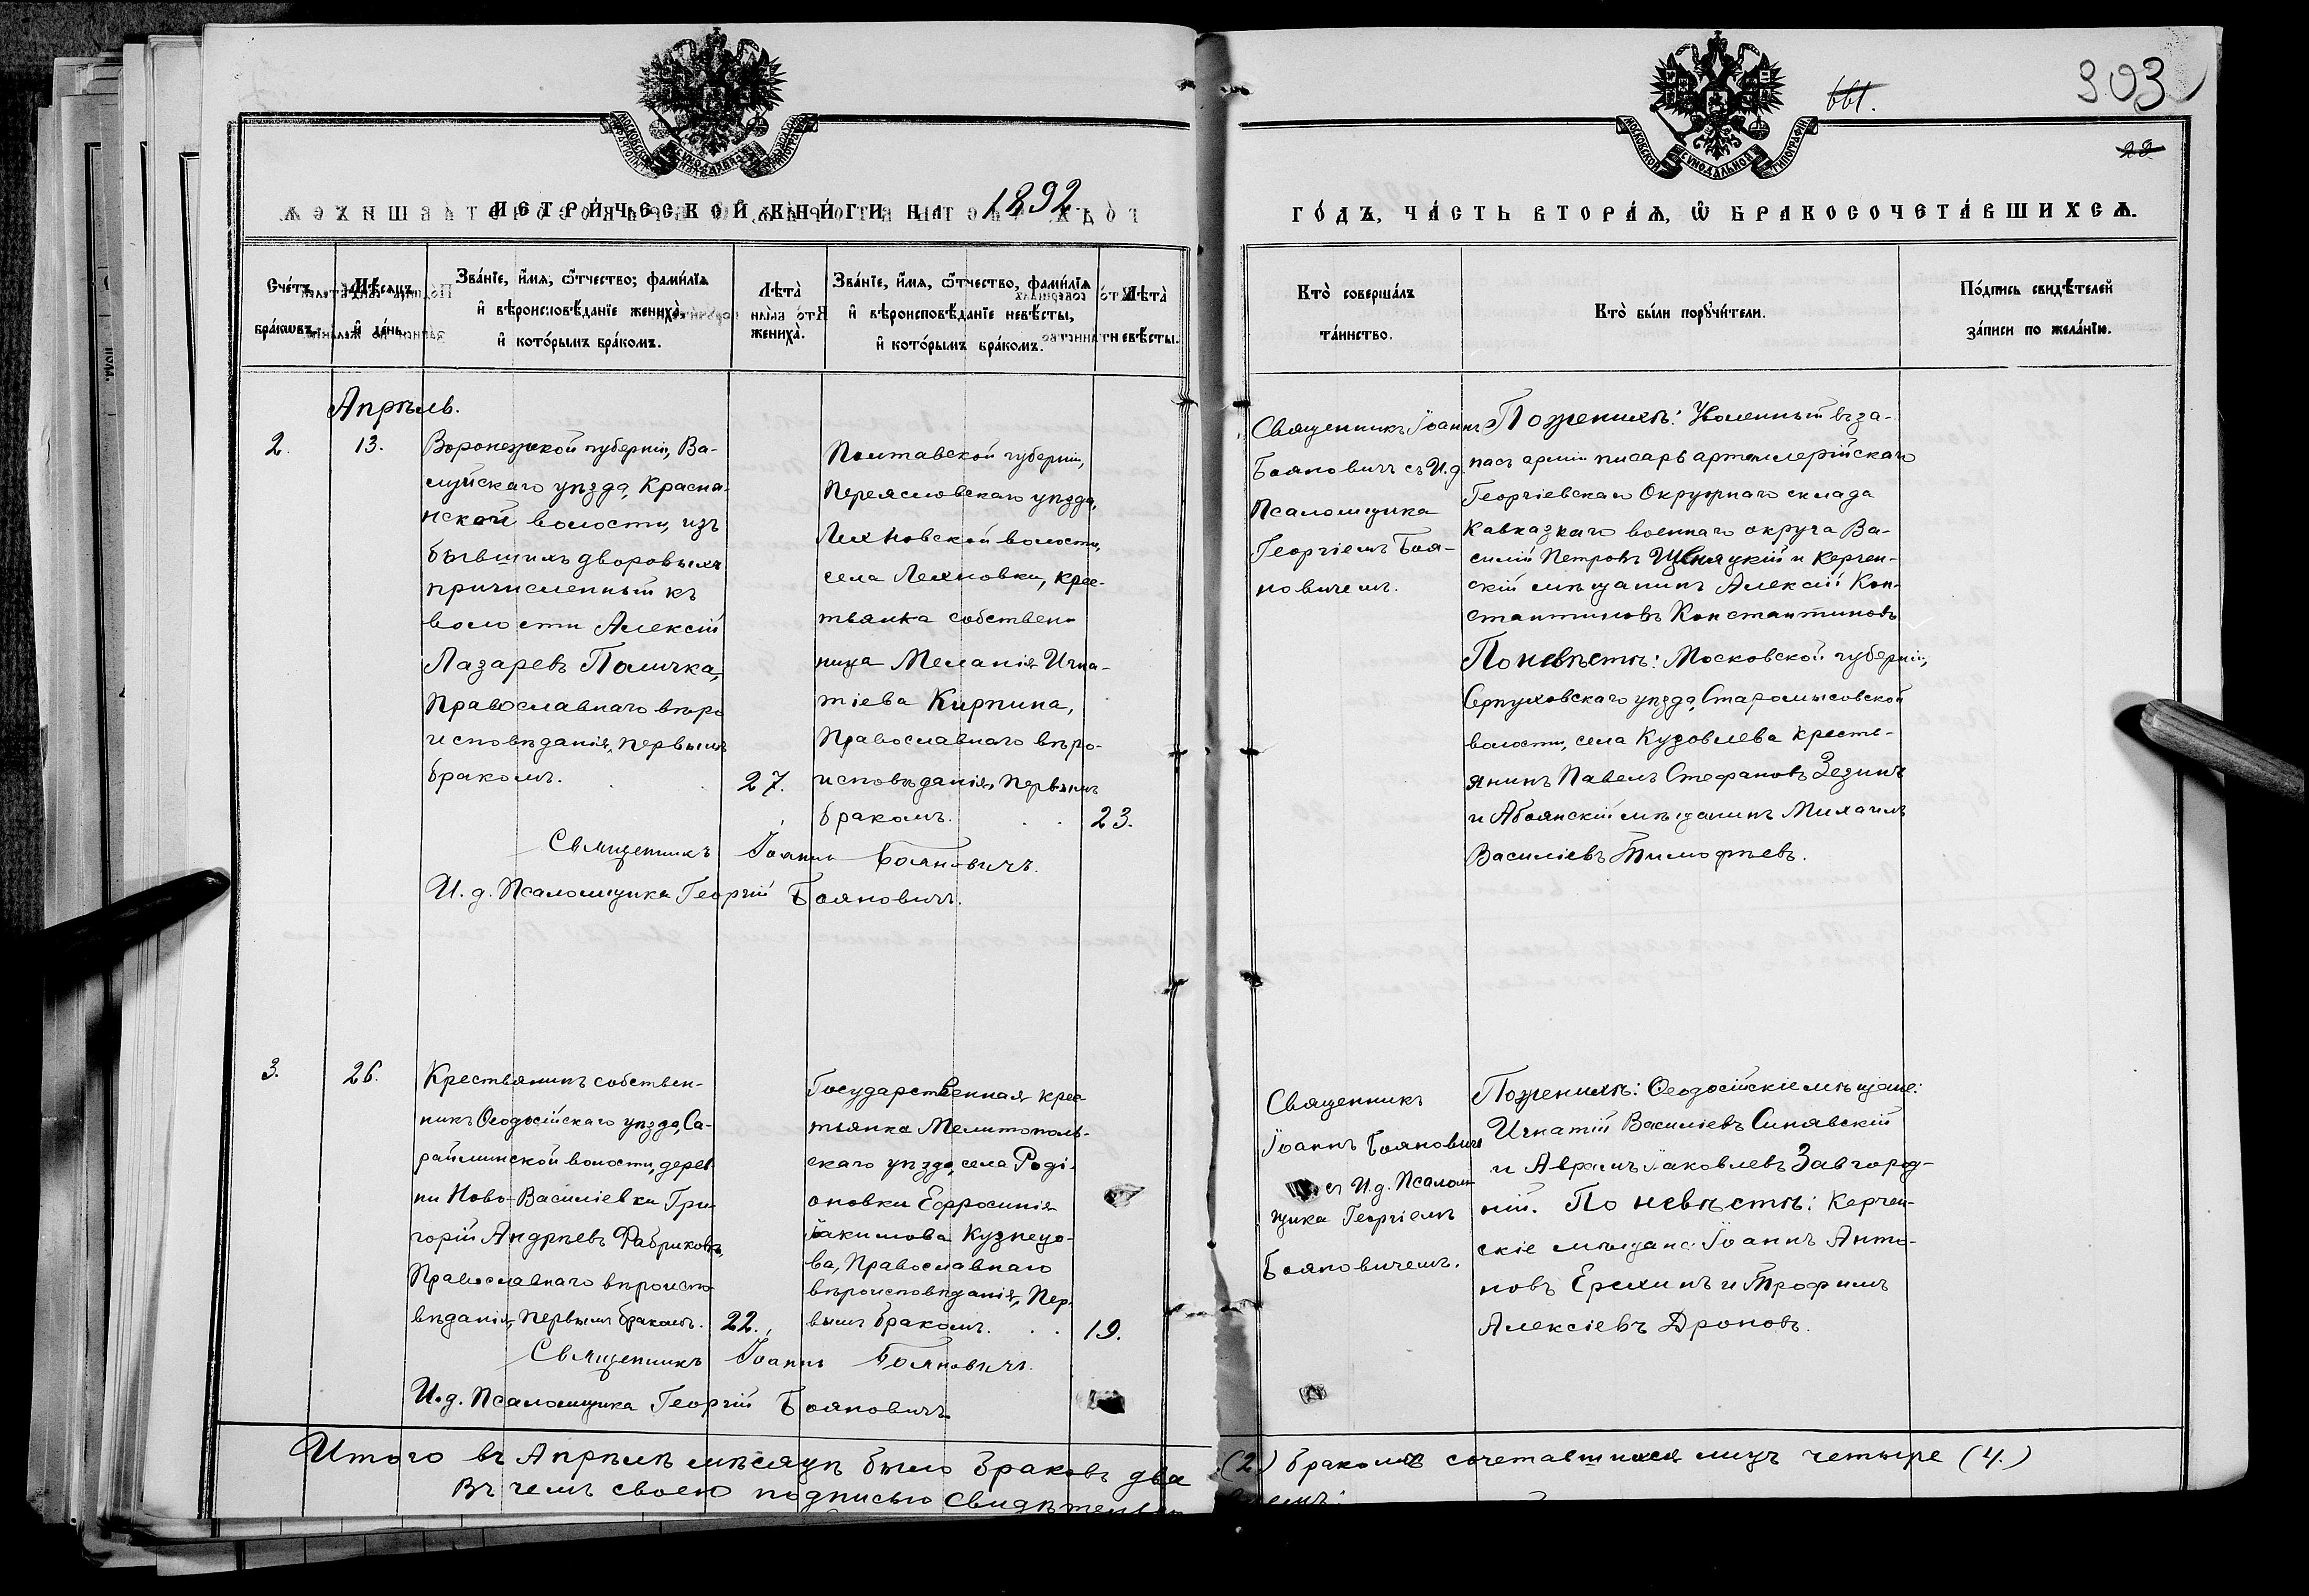 661.
303
22
МЕТРИ́ЧЕСКОЙ КНИ́ГИ НА 1892
ГО́ДЪ, ЧА́СТЬ ВТОРА́Ѧ, Ѽ БРАКОСОЧЕТА́ВШИХСѦ.
Сче́тъ бра́кѡвъ.
Мѣ́сѧцъ и҆ де́нь.
Зва́нїе, и҆́мѧ, ѻ҆́тчество; фами́лїѧ
и҆ вѣроисповѣ́данїе жениха̀,
и҆ кото́рымъ бра́комъ.
Лѣта̀
жениха̀.
Зва́нїе, и҆́мѧ, ѻ҆́тчество, фами́лїѧ
и҆ вѣроисповѣ́данїе невѣ́сты,
и҆ кото́рымъ бра́комъ.
Лѣта̀
невѣ́сты.
Кто̀ соверша́лъ
та́инство.
Кто̀ бы́ли порꙋчи́тели.
По́дпись свидѣ́телей
за́писи по жела́нїю.
Апрѣль.
2.
13.
Воронежской губерніи, Ва-
луйскаго уѣзда, Красна-
нской волости, изъ
бывшихъ дворовыхъ
причисленный къ
волости Алексій
Лазаревъ Паличка,
Православнаго вѣро
исповѣданія, первымъ
бракомъ.
27.
Полтавской губерніи,
Переяславскаго уѣзда,
Лехновской волости,
села Лехновки, крес-
тьянка собствен-
ница Меланія Игна-
тіева Кирпина,
Православнаго вѣро-
исповѣданія, первымъ
бракомъ.
23.
Священникъ Іоаннъ Бояновичъ.
И. д. Псаломщика Георгій Бояновичъ.
Священникъ Іоаннъ
Бояновичъ съ И. д.
Псаломщика
Георгіемъ Боя-
новичемъ.
По женихѣ: Уволенный въ за-
пасъ арміи писарь артиллерійскаго
Георгіевскаго Окружнаго склада
Кавказкаго военнаго округа Ва-
силій Петровъ и Керчен-
скій мѣщанинъ Алексій Кон-
стантиновъ Константиновъ
По невѣстѣ: Московской губерніи,
Серпуховскаго уѣзда, Старомысовской
волости, села Кузовлева кресть-
янинъ Павелъ Стефановъ Зезинъ
и Абоянскій мѣщанинъ Михаилъ
Василіевъ Тимофѣевъ.
3.
26.
Крестьянинъ собствен-
никъ Ѳеодосійскаго уѣзда, Са-
райминской волости, дерев
ни Ново-Василіевки Гри-
горій Андрѣевъ Фабриковъ,
Православнаго вѣроиспо
вѣданія, первымъ бракомъ.
22.
Государственная крес
тьянка Мелитополь-
скаго уѣзда, села Роді-
оновки Ефросинія
Іакимова Кузнецо-
ва, Православнаго
вѣроисповѣданія, Пер-
вымъ бракомъ.
19.
Священникъ Іоаннъ Бояновичъ.
И. д. Псаломщика Георгій Бояновичъ
Священникъ
Іоаннъ Бояновичъ
съ И. д. Псалом-
щика Георгіемъ
Бояновичемъ.
По женихѣ: Ѳеодосійскіе мѣщане:
Игнатій Василіевъ Синявскій
и Аврамъ Іаковлевъ Завгород-
ній. По невѣстѣ: Керчен-
скіе мѣщане Іоаннъ Анто-
новъ Ерихинъ и Трофимъ
Алексіевъ Дроновъ.
Итого въ Апрѣлѣ мѣсяцѣ было браковъ два (2) бракомъ сочетавшихся лицъ четыре (4.)
Въ чемъ своею подписью